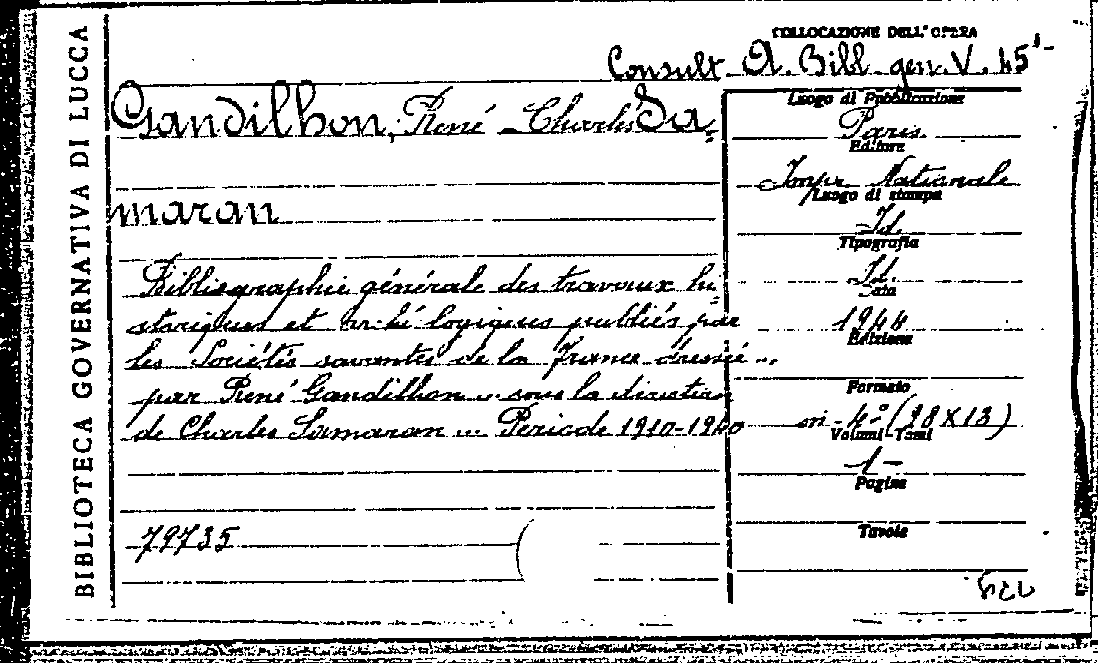 BIBLIOTECA GOVERNATIVA DI LUCCA
COLLOCAZIONE DELL'OPERA
Consult. A. Bibl. gen. V. 45
Gandilhon, René - Charles Sa-
maran
Bibliographie générale des travaux hi-
storiques et archéologiques publiés par
les Sociétés savantes de la France dressée ...
par René Gandilhon ... sous la direction
de Charles Samaran ... Periode 1910-1940
79735
Luogo di Pubblicazione
Paris
Editore
Impr. Nationale
Luogo di stampa
Id.
Tipografia
Id.
Data
1944
Edizione
Formato
in-4° (28 X 13)
Volumi-Tomi
1-
Pagine
Tavole